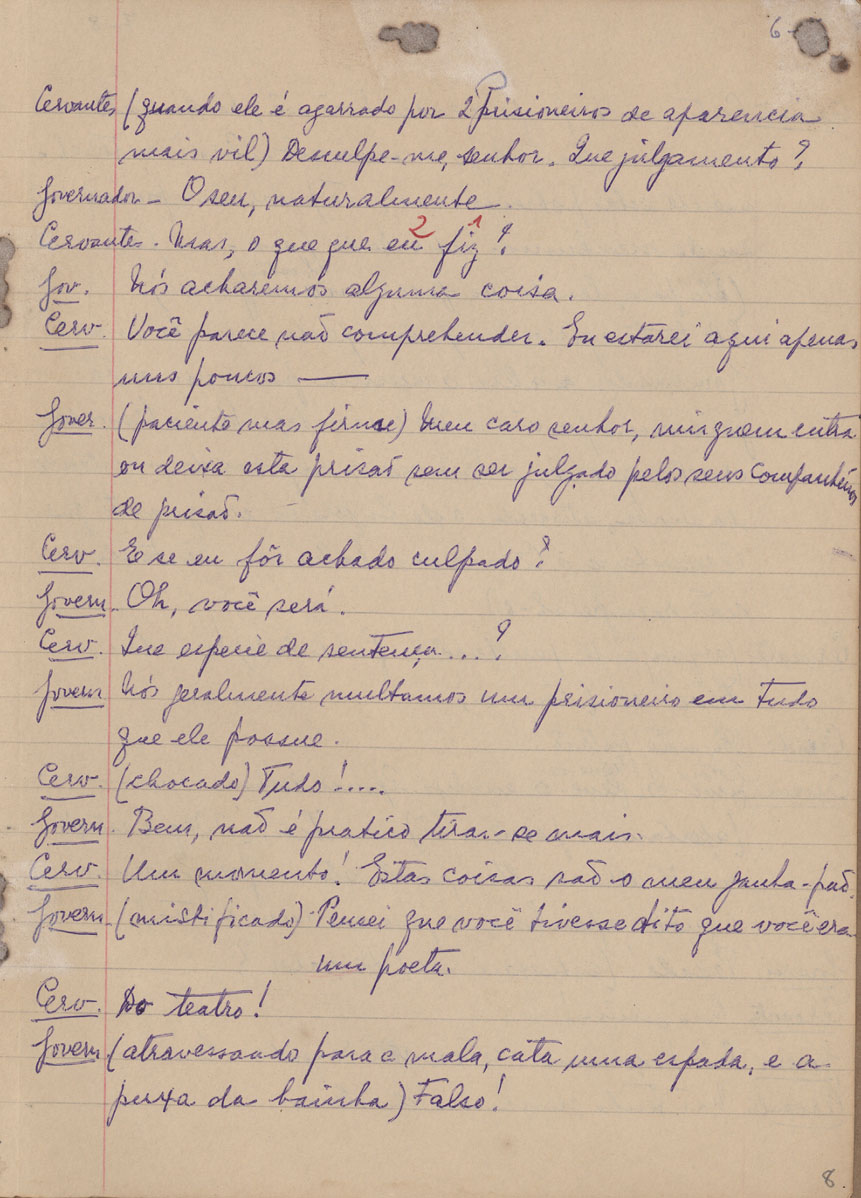 6-
Cervantes (quando ele é agarrado por 2 Prisioneiros de aparencia
mais vil) Desculpe-me, senhor. Que julgamento?
Governador - O seu, naturalmente.
Cervantes. Mas, o que que eu 2 fiz 1?
Gov. Nós acharemos alguma coisa.
Cerv. Você parece não comprehender. Eu estarei aqui apenas
uns poucos ——
Gover. (paciente mas firme) Meu caro senhor, ninguem entra
ou deixa esta prisaõ sem ser julgado pelos seus companheiros
de prisaõ.
Cerv. E se eu fôr achado culpado?
Govern. Oh, você será.
Cerv. Que especie de sentença...?
Govern Nós geralmente multamos um prisioneiro em tudo
que ele possue.
Cerv. (chocado) Tudo!....
Govern. Bem, naõ é pratico tirar-se mais.
Cerv. Um momento! Estas coisas saõ o meu ganha-paõ.
Govern. (mistificado) Pensei que você tivesse dito que você era
um poeta.
Cerv. Do teatro!
Govern (atravessando para a mala, cata uma espada, e a
puxa da bainha) Falso!
8